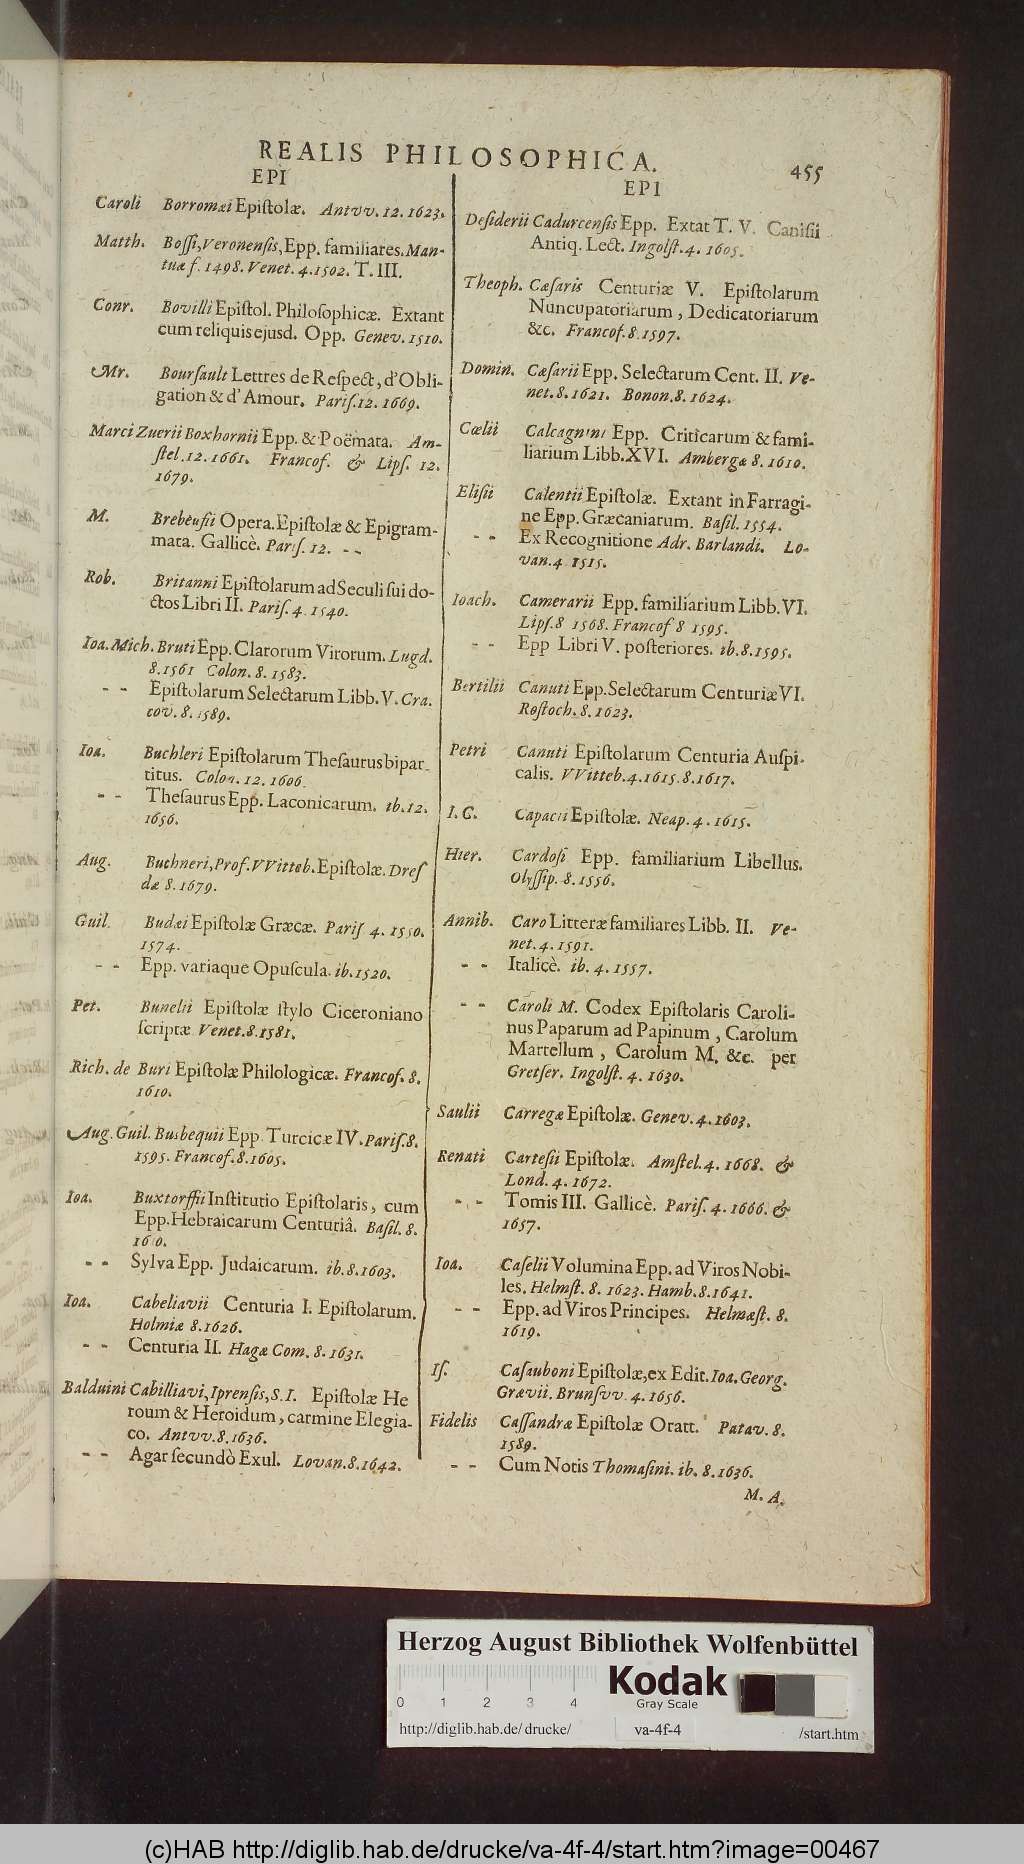 REALIS PHILOSOPHICA.
455
EPI
Caroli Borromæi Epistolæ. Antvv. 12. 1623.
Matth. Bossi, Veronensis, Epp. familiares. Man-
tuæ f. 1498. Venet. 4. 1502. T. III.
Conr. Bovilli Epistol. Philosophicæ. Extant
cum reliquis ejusd. Opp. Genev. 1510.
Mr. Boursault Lettres de Respect, d'Obli-
gation & d'Amour. Paris. 12. 1669.
Marci Zuerii Boxhornii Epp. & Poëmata. Am-
stel. 12. 1661. Francof. & Lips. 12.
1679.
M. Brebeusii Opera. Epistolæ & Epigram-
mata. Gallicè. Paris. 12. - -
Rob. Britanni Epistolarum ad Seculi sui do-
ctos Libri II. Paris. 4. 1540.
Ioa. Mich. Bruti Epp. Clarorum Virorum. Lugd.
8. 1561 Colon. 8. 1583.
- - Epistolarum Selectarum Libb. V. Cra.
cov. 8. 1589.
Ioa. Buchleri Epistolarum Thesaurus bipar-
titus. Colon. 12. 1606.
- - Thesaurus Epp. Laconicarum. ib. 12.
1656.
Aug. Buchneri, Prof. VVitteb. Epistolæ. Dres
dæ 8. 1679.
Guil. Budæi Epistolæ Græcæ. Paris 4. 1550.
1574.
- - Epp. variaque Opuscula. ib. 1520.
Pet. Bunelii Epistolæ stylo Ciceroniano
scriptæ Venet. 8. 1581.
Rich. de Buri Epistolæ Philologicæ. Francof. 8.
1610.
Aug. Guil. Busbequii Epp. Turcicæ IV. Paris. 8.
1595. Francof. 8. 1605.
Ioa. Buxtorffii Institutio Epistolaris, cum
Epp. Hebraicarum Centuriâ. Basil. 8.
Sylva Epp. Judaicarum. ib. 8. 1603.
Ioa. Cabeliavii Centuria I. Epistolarum.
Holmiæ 8. 1626.
- - Centuria II. Hagæ Com. 8. 1631.
Balduini Cabilliavi, Iprensis, S. I. Epistolæ He
roum & Heroidum, carmine Elegia-
co. Antvv. 8. 1636.
- - Agar secundò Exul. Lovan. 8. 1642.
EPI
Desiderii Cadurcensis Epp. Extat T. V. Canisii
Antiq. Lect. Ingolst. 4. 1605.
Theoph. Cæsaris Centuriæ V. Epistolarum
Nuncupatoriarum, Dedicatoriarum
&c. Francof. 8. 1597.
Domin. Cæsarii Epp. Selectarum Cent. II. Ve-
net. 8. 1621. Bonon. 8. 1624.
Cœlii Calcagnini Epp. Criticarum & fami-
liarium Libb. XVI. Ambergæ 8. 1610.
Elisii Calentii Epistolæ. Extant in Farragi-
ne Epp. Græcaniarum. Basil. 1554.
- - Ex Recognitione Adr. Barlandi. Lo-
van. 4 1515.
Ioach. Camerarii Epp. familiarium Libb. VI.
Lips. 8 1568. Francof 8 1595.
- - Epp Libri V. posteriores. ib. 8. 1595.
Bertilii Canuti Epp. Selectarum Centuriæ VI.
Rostoch. 8. 1623.
Petri Canuti Epistolarum Centuria Auspi-
calis. VVitteb. 4. 1615. 8. 1617.
I. C. Capacii Epistolæ. Neap. 4. 1615.
Hier. Cardosi Epp. familiarium Libellus.
Olyssip. 8. 1556.
Annib. Caro Litteræ familiares Libb. II. Ve-
net. 4. 1591.
- - Italicè. ib. 4. 1557.
- - Caroli M. Codex Epistolaris Caroli-
nus Paparum ad Papinum, Carolum
Martellum, Carolum M. &c. per
Gretser. Ingolst. 4. 1630.
Saulii Carregæ Epistolæ. Genev. 4. 1603.
Renati Cartesii Epistolæ. Amstel. 4. 1668. &
Lond. 4. 1672.
- - Tomis III. Gallicè. Paris. 4. 1666. &
1657.
Ioa. Caselii Volumina Epp. ad Viros Nobi-
les. Helmst. 8. 1623. Hamb. 8. 1641.
- - Epp. ad Viros Principes. Helmæst. 8.
1619.
Is. Casauboni Epistolæ, ex Edit. Ioa. Georg.
Grævii. Brunsvv. 4. 1656.
Fidelis Cassandræ Epistolæ Oratt. Patav. 8.
1589.
- - Cum Notis Thomasini. ib. 8. 1636.
M. A.
Herzog August Bibliothek Wolfenbüttel
Kodak
Gray Scale
0 1 2 3 4
http://diglib.hab.de/drucke/ va-4f-4 /start.htm
(c)HAB http://diglib.hab.de/drucke/va-4f-4/start.htm?image=00467